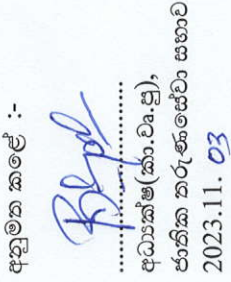 අනුමත කළේ :-
................................
අධ්‍යක්ෂ(කා.ව්‍ය.පු),
ජාතික තරුණසේවා සභාව
2023.11. 03